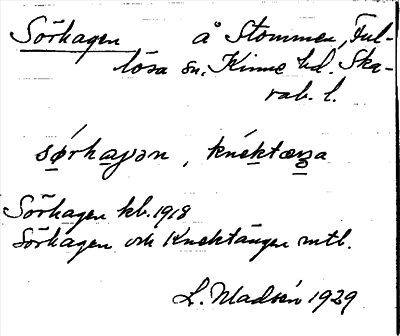 Sörhagen å Stommen, Ful-
lösa sn, Kinne hd. Ska-
rab. l.
sǿrhaγən, knéktæŋa
Sörhagen kb. 1918
Sörhagen och Knektängen mtb.
L. Madsén 1929